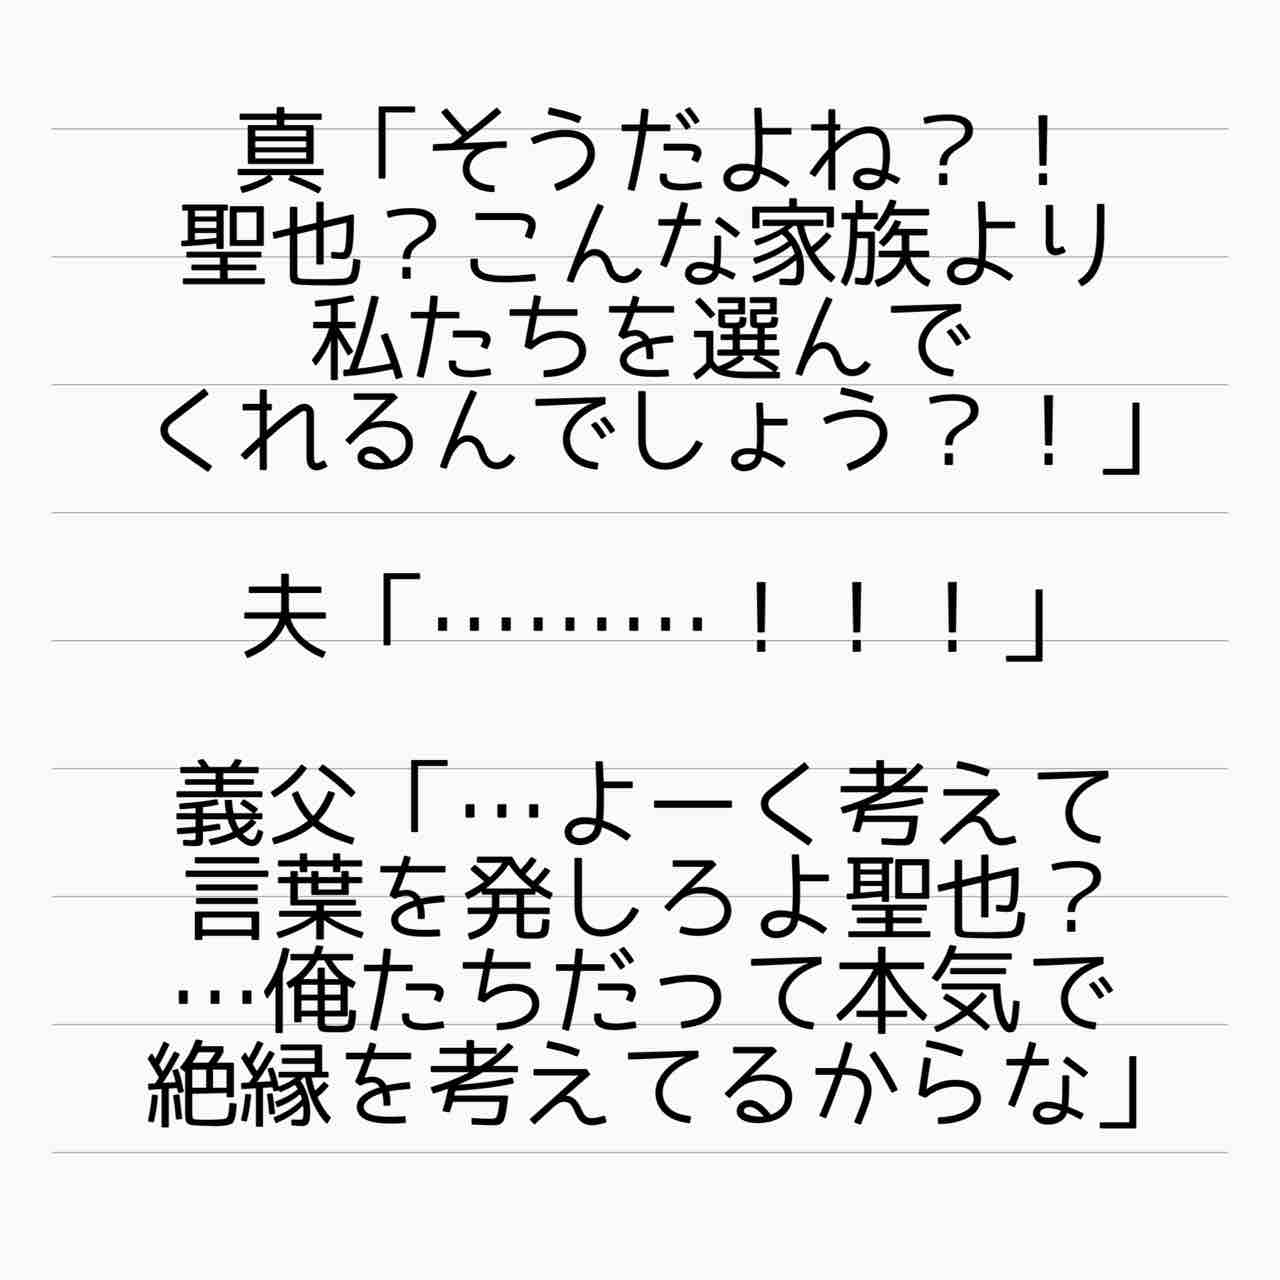 真「そうだよね？！
聖也？こんな家族より
私たちを選んで
くれるんでしょう？！」
夫「………！！！」
義父「…よーく考えて
言葉を発しろよ聖也？
…俺たちだって本気で
絶縁を考えてるからな」